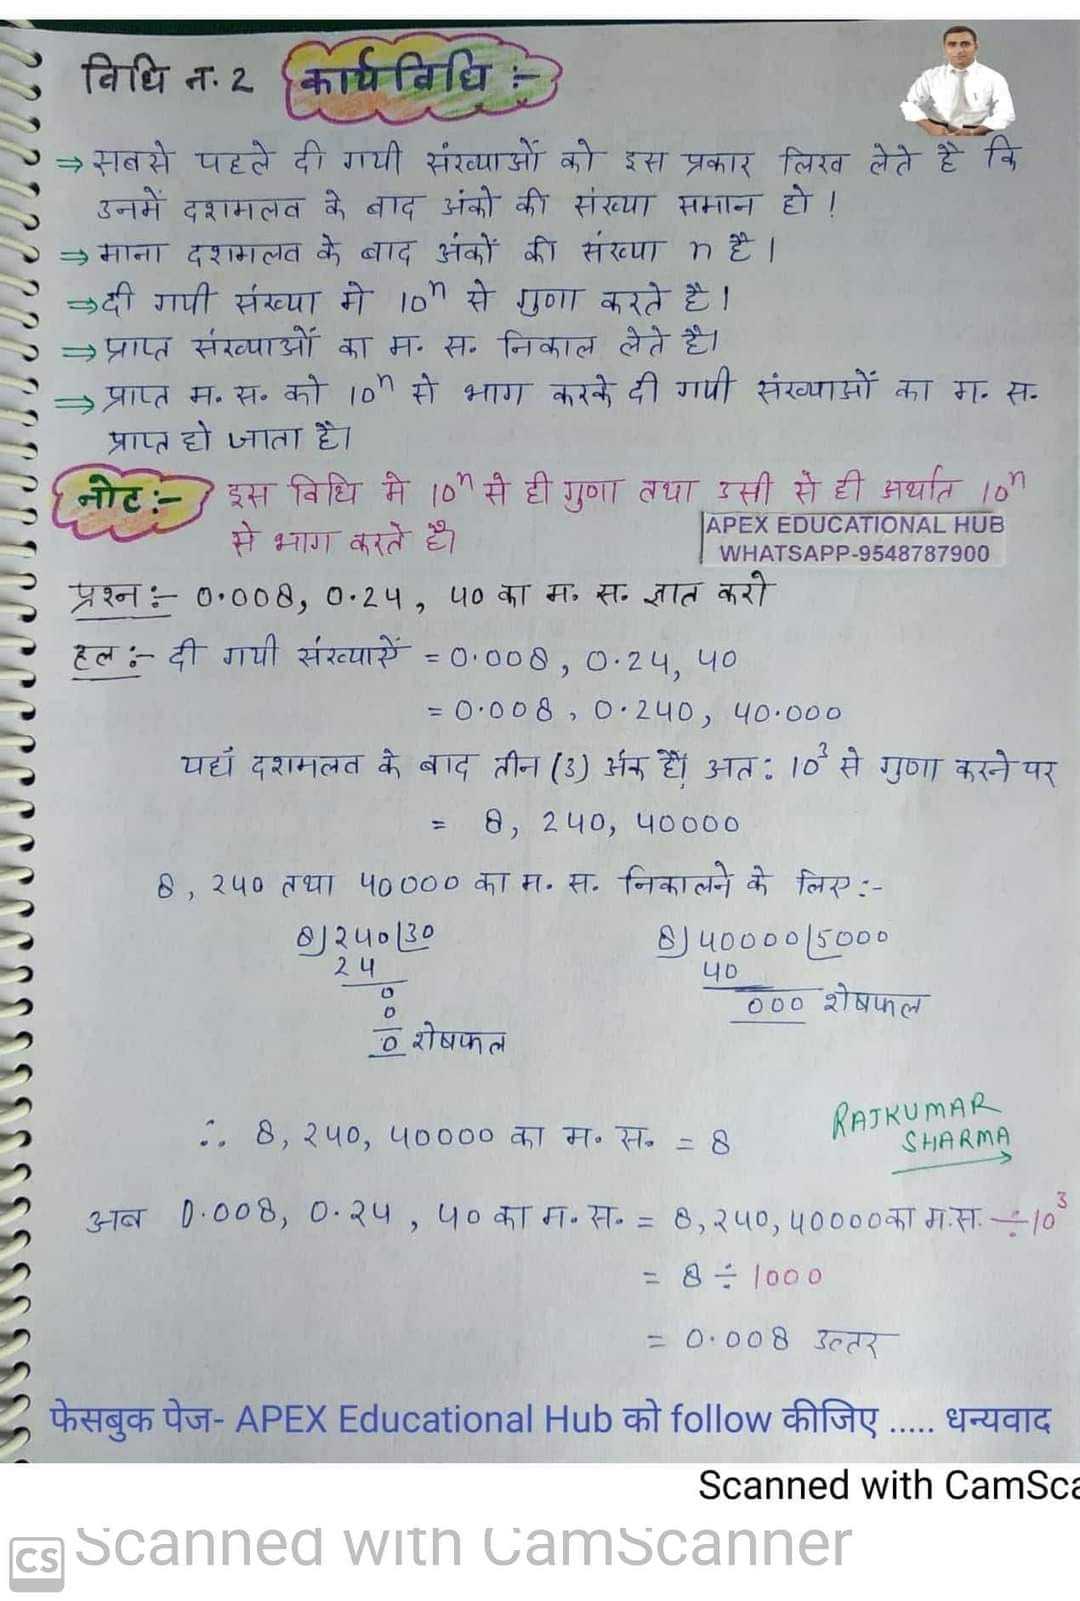 विधि न. 2 कार्यविधि :-
⇒ सबसे पहले दी गयी संख्याओं को इस प्रकार लिख लेते है कि
उनमें दशमलव के बाद अंको की संख्या समान हो !
⇒ माना दशमलव के बाद अंकों की संख्या n है ।
⇒ दी गयी संख्या मे 10ⁿ से गुणा करते है ।
⇒ प्राप्त संख्याओं का म. स. निकाल लेते है।
⇒ प्राप्त म. स. को 10ⁿ से भाग करके दी गयी संख्याओं का म. स.
प्राप्त हो जाता है।
नोट :- इस विधि मे 10ⁿ से ही गुणा तथा उसी से ही अर्थात 10ⁿ
से भाग करते है।
APEX EDUCATIONAL HUB
WHATSAPP-9548787900
प्रश्न :- 0.008, 0.24, 40 का म. स. ज्ञात करो
हल :- दी गयी संख्यायें = 0.008, 0.24, 40
= 0.008, 0.240, 40.000
यहाँ दशमलव के बाद तीन (3) अंक हैं, अतः 10³ से गुणा करने पर
= 8, 240, 40000
8, 240 तथा 40000 का म. स. निकालने के लिए :-
8)240(30 8)40000(5000
24 40
0 000 शेषफल
0
0 शेषफल
∴ 8, 240, 40000 का म. स. = 8
RAJKUMAR
SHARMA
अब 0.008, 0.24, 40 का म. स. = 8, 240, 40000 का म.स. ÷ 10³
= 8 ÷ 1000
= 0.008 उत्तर
फेसबुक पेज- APEX Educational Hub को follow कीजिए ..... धन्यवाद
Scanned with CamSca
CS Scanned with CamScanner